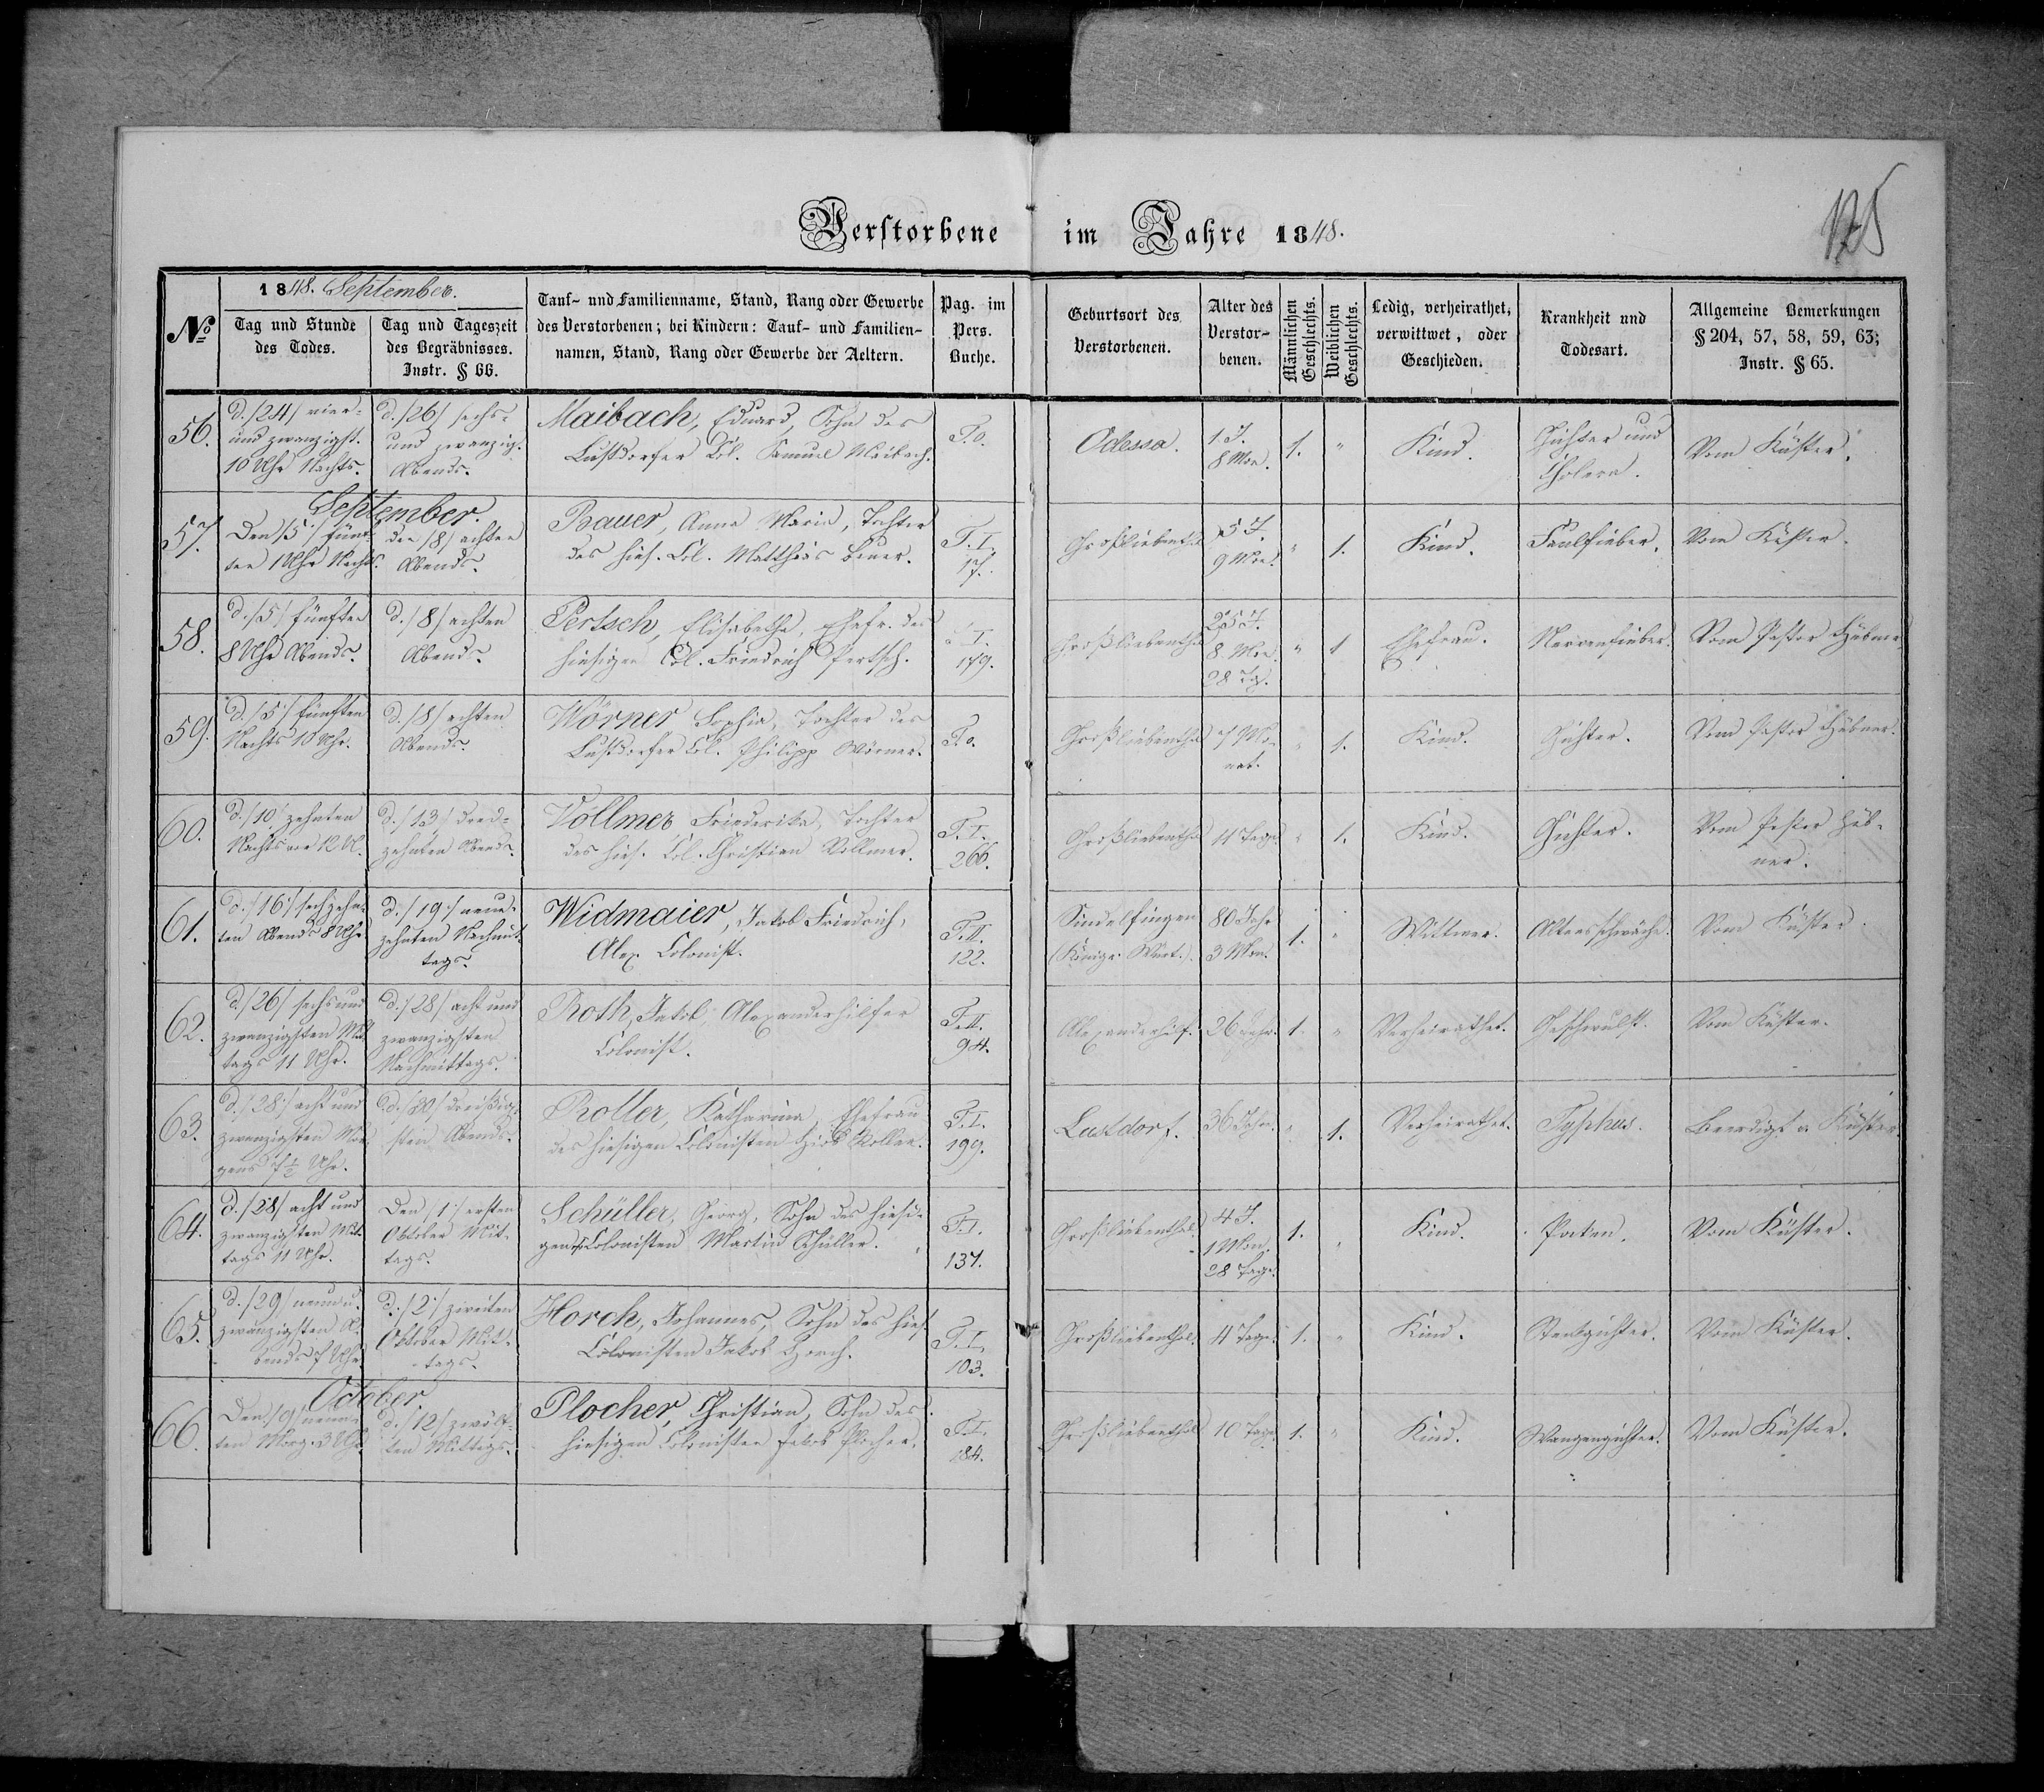 Verstorbene im Jahre 1848.
175
1848. September.
No
Tag und Stunde des Todes.
Tag und Tageszeit des Begräbnisses. Instr. § 66.
Tauf- und Familienname, Stand, Rang oder Gewerbe
des Verstorbenen; bei Kindern: Tauf- und Familien-
namen, Stand, Rang oder Gewerbe der Aeltern.
Pag. im Pers. Buche.
Geburtsort des Verstorbenen.
Alter des Verstor-benen.
Männlichen Geschlechts.
Weiblichen Geschlechts.
Ledig, verheirathet, verwittwet, oder Geschieden.
Krankheit und Todesart.
Allgemeine Bemerkungen
§ 204, 57, 58, 59, 63;
Instr. § 65.
56.
d. /24/ vier-
und zwanzigst.
10 Uhr Nachts.
d. /26/ sechs-
und zwanzigst.
Abends.
Maibach, Eduard, Sohn des
Lustdorfer Col. Samuel Maibach.
T. o.
Odessa.
1. J.
8 Mon.
1.
"
Kind.
Gichter und
Cholera.
Vom Küster.
September.
57.
Den /5/ fünf-
ten 1 Uhr Nachts.
den /8/ achten
Abends.
Bauer, Anna Maria, Tochter
des hies. Col. Matthäus Bauer.
T. I.
17.
Großliebenthal
5 J.
9 Mon.
"
1.
Kind.
Faulfieber.
Vom Küster.
58.
d. /5/ fünften
8 Uhr Abends.
d. /8/ achten
Abends.
Pertsch, Elisabetha, Ehefr. des
hiesigen Col. Friedrich Pertsch.
T. I.
179.
Großliebenthal
25 J.
8. Mon.
28 Tg.
"
1
Ehefrau.
Nervenfieber.
Vom Pastor Hübner
59.
d. /5/ fünften
Nachts 10 Uhr.
d. /8/ achten
Abends.
Wörner Sophia, Tochter des
Lustdorfer Col. Philipp Wörner.
T. o.
Großliebenthal
7 Mo-
nat.
"
1.
Kind.
Gichter.
Vom Pastor Hübner.
60.
d. /10/ zehnten
Nachts vor 12 U.
d. /13/ drei-
zehnten Abends.
Vollmer Friederika, Tochter
des hies. Col. Christian Vollmer.
T. I.
266.
Großliebenthal
11 Tage
"
1.
Kind.
Gichter.
Vom Pastor Hüb-
ner.
61.
d. /16/ sechzehn-
ten Abends 8 Uhr
d. /19/ neun-
zehnten Nachmit-
tags.
Widmaier, Jakob Friedrich,
Alex. Colonist.
T. II.
122.
Sindelfingen
(Königr. Würt.).
80 Jahr
3 Mon.
1.
"
Wittwer.
Altersschwäche.
Vom Küster.
62.
d. /26/ sechs und
zwanzigsten Mit-
tags 11 Uhr.
d. /28/ acht und
zwanzigsten
Nachmittags.
Roth, Jakob, Alexanderhilfer
Colonist.
T. II.
94.
Alexanderhilf.
26 Jahr.
1.
"
Verheirathet.
Geschwulst.
Vom Küster.
63.
d. /28/ acht und
zwanzigsten Mor-
gens 7½ Uhr.
d. /30/ dreißig-
sten Abends.
Roller, Katharina, Ehefrau
des hiesigen Colonisten Hiob Roller.
T. I.
199.
Lustdorf.
36 Jahr.
"
1.
Verheirathet.
Typhus.
Beerdigt v. Küster.
64.
d. /28/ acht und
zwanzigsten Mit-
tags 11 Uhr.
Den /1/ ersten
Oktober Mit-
tags.
Schüller, Georg, Sohn des hiesi-
gen Colonisten Martin Schüller.
T. I.
137.
Großliebenthal.
4 J.
1 Mon.
28 Tage.
1.
"
Kind.
Poken.
Vom Küster.
65.
d. /29/ neun u.
zwanzigsten A-
bends 7 Uhr
d. /2/ zweiten
Oktober Mit-
tags.
Horch, Johannes, Sohn des hies.
Colonisten Jakob Horch.
T. I.
103.
Großliebenthal.
4 Tage.
1.
"
Kind.
Vom Küster.
October.
66.
Den /9/ neun-
ten Morg. 3 Uhr
d. /12/ zwölf-
ten Mittags.
Plocher, Christian, Sohn des
hiesigen Colonisten Jakob Plocher.
T. I.
184.
Großliebenthal
10 Tage
1.
"
Kind.
Vom Küster.